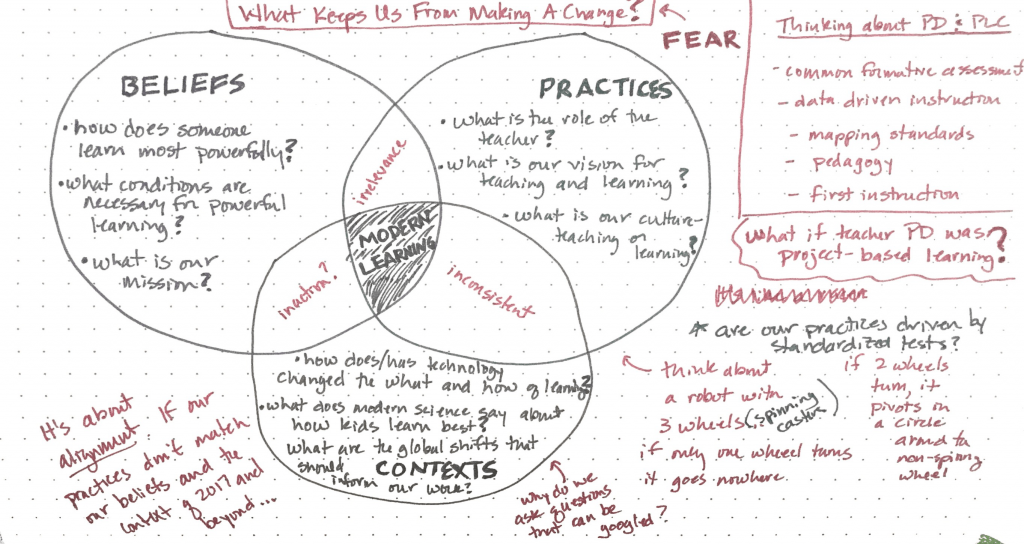 What Keeps Us From Making A Change?
FEAR
BELIEFS
• how does someone
learn most powerfully?
• what conditions are
necessary for powerful
learning?
• what is our
mission?
PRACTICES
• what is the role of the
teacher?
• what is our vision for
teaching and learning?
• what is our culture-
teaching or
learning?
irrelevance
MODERN
LEARNING
inaction?
inconsistent
• how does/has technology
changed the what and how of learning?
• what does modern science say about
how kids learn best?
what are the global shifts that
should
inform our work?
CONTEXTS
Thinking about PD & PLC
- common formative assessment
- data driven instruction
- mapping standards
- pedagogy
- first instruction
What if teacher PD was
project-based learning?
* are our practices driven by
standardized tests?
think about
a robot with
3 wheels (spinning
casters)
if only one wheel turns
it goes nowhere
if 2 wheels
turn, it
pivots in
a circle
around the
non-spinning
wheel
It's about
alignment. If our
practices don't match
our beliefs and the
context of 2017 and
beyond...
why do we
ask questions
that can be
googled?